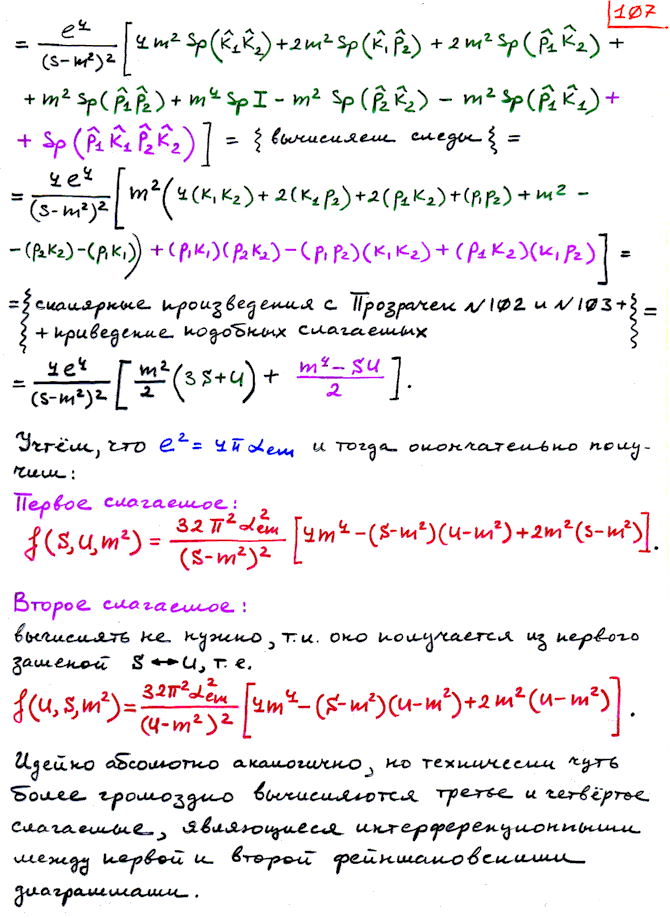 107
= e⁴/(s-m²)² [4m² Sp(k̂₁k̂₂) + 2m² Sp(k̂₁p̂₂) + 2m² Sp(p̂₁k̂₂) +
+ m² Sp(p̂₁p̂₂) + m⁴ Sp I - m² Sp(p̂₂k̂₂) - m² Sp(p̂₁k̂₁) +
+ Sp(p̂₁k̂₁p̂₂k̂₂)] = {вычисляем следы} =
= 4e⁴/(s-m²)² [m²(4(k₁k₂) + 2(k₁p₂) + 2(p₁k₂) + (p₁p₂) + m² -
- (p₂k₂) - (p₁k₁)) + (p₁k₁)(p₂k₂) - (p₁p₂)(k₁k₂) + (p₁k₂)(k₁p₂)] =
= {скалярные произведения с Прозрачек №102 и №103 +
+ приведение подобных слагаемых} =
= 4e⁴/(s-m²)² [m²/2 (3s+u) + (m⁴-su)/2].
Учтём, что e² = 4π αem и тогда окончательно полу-
чим:
Первое слагаемое:
f(s,u,m²) = 32π²α²em/(s-m²)² [4m⁴ - (s-m²)(u-m²) + 2m²(s-m²)].
Второе слагаемое:
вычислять не нужно, т.к. оно получается из первого
заменой s ↔ u, т.е.
f(u,s,m²) = 32π²α²em/(u-m²)² [4m⁴ - (s-m²)(u-m²) + 2m²(u-m²)].
Идейно абсолютно аналогично, но технически чуть
более громоздко вычисляются третье и четвёртое
слагаемые, являющиеся интерференционными
между первой и второй фейнмановскими
диаграммами.